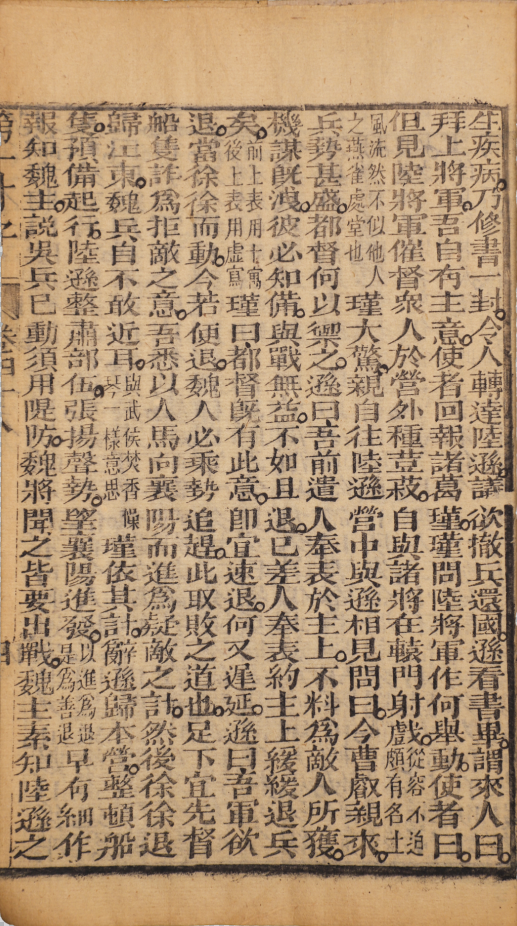 生疾病乃修書一封令人轉達陸遜議欲撤兵還國遜看書畢謂來人曰
拜上將軍吾自有主意使者回報諸葛瑾瑾問陸將軍作何舉動使者曰
但見陸將軍催督衆人於營外種荳菽自與諸將在轅門射戲從容不迫頗有名士
風流然不似他人之燕雀處堂也瑾大驚親自往陸遜營中與遜相見問曰今曹叡親來
兵勢甚盛都督何以禦之遜曰吾前遣人奉表於主上不料爲敵人所獲
機謀旣洩彼必知備與戰無益不如且退已差人奉表約主上緩緩退兵
矣前上表用寔後上表用虛寫瑾曰都督旣有此意即宜速退何又遲延遜曰吾軍欲
退當徐徐而動今若便退魏人必乘勢追趕此取敗之道也足下宜先督
船隻詐爲拒敵之意吾悉以人馬向襄陽而進爲疑敵之計然後徐徐退
歸江東魏兵自不敢近耳與武侯焚香操琴一樣意思瑾依其計辭遜歸本營整頓船
隻預備起行陸遜整肅部伍張揚聲勢望襄陽進發以進爲退是爲善退早有細作
報知魏主說吳兵已動須用隄防魏將聞之皆要出戰魏主素知陸遜之